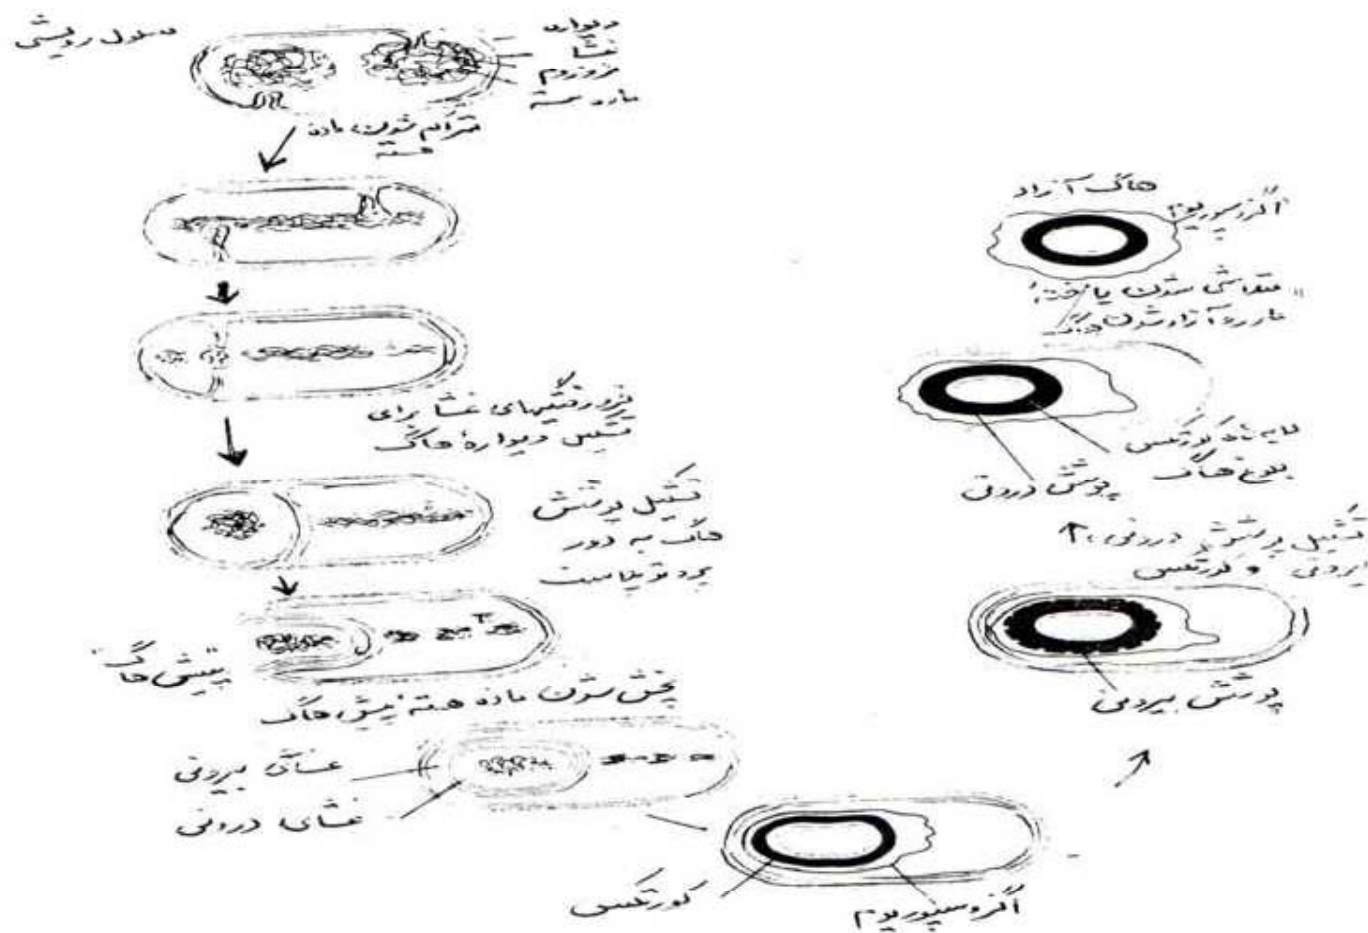 سلول رویشی
دیواره
غشا
مزوزوم
ماده هسته
متراکم شدن ماده
هسته
فرورفتگیهای غشا برای
تشکیل دیوارهٔ هاگ
تشکیل پوشش
هاگ به دور
پروتوپلاست
پیش هاگ
پخش شدن ماده هسته پیش هاگ
غشای بیرونی
غشای درونی
کورتکس
اگزوسپوریوم
پوشش بیرونی
تشکیل پوشش درونی،
بیرونی و کورتکس
پوشش درونی
لایه کورتکس
بلوغ هاگ
متلاشی شدن یاخته
و آزاد شدن هاگ
اگزوسپوریوم
هاگ آزاد